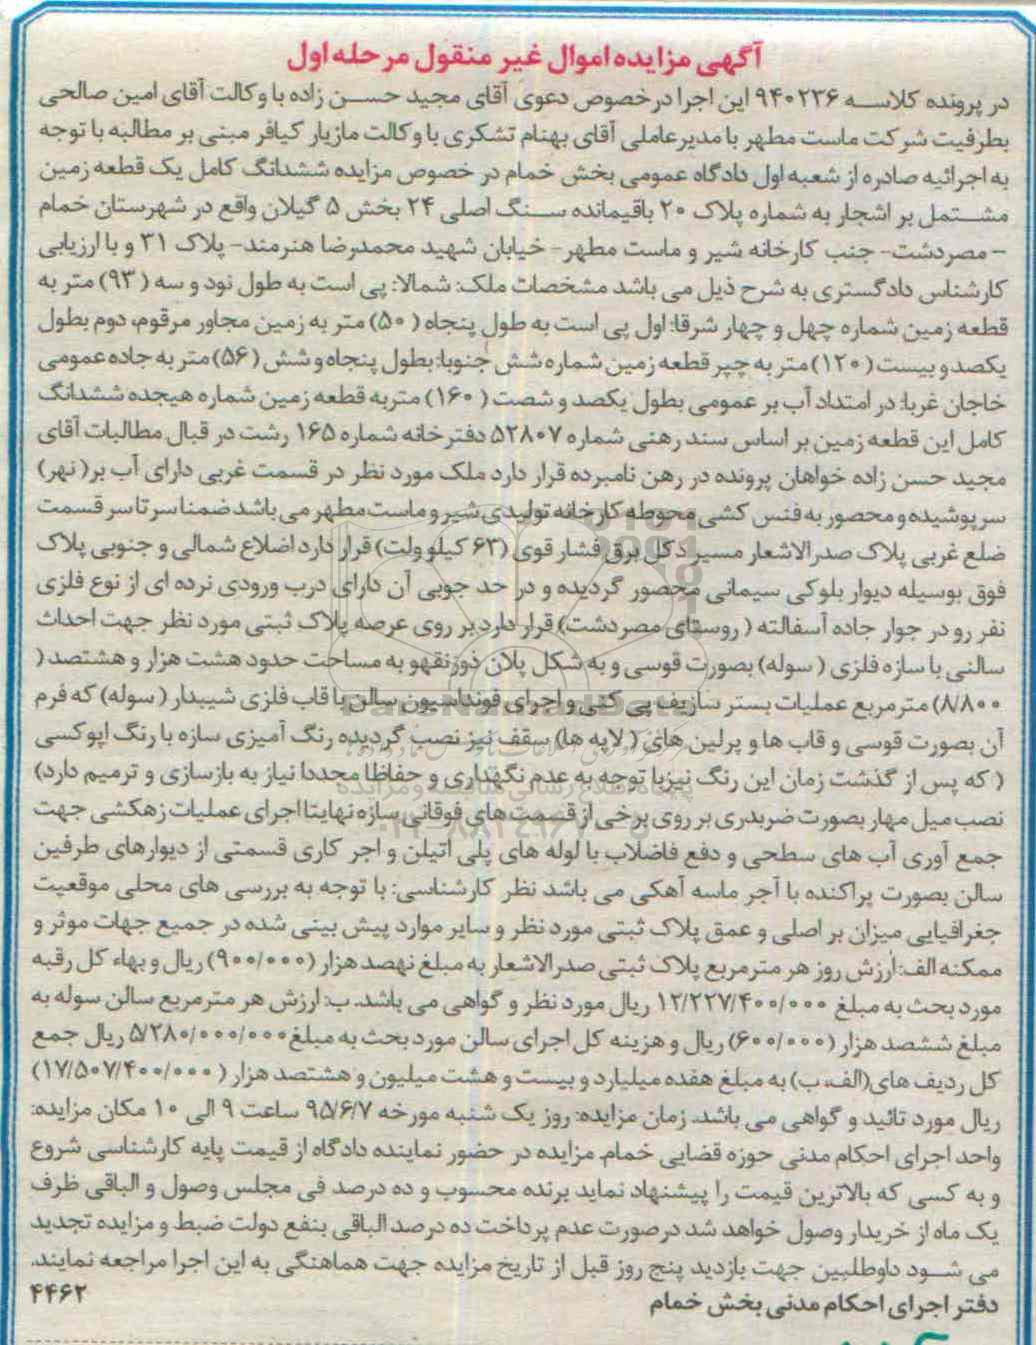 آگهی مزایده اموال غیر منقول مرحله اول
در پرونده کلاسه ۹۴۰۲۳۶ این اجرا در خصوص دعوی آقای مجید حسن زاده با وکالت آقای امین صالحی
بطرفیت شرکت ماست مطهر با مدیرعاملی آقای بهنام تشکری با وکالت مازیار کیافر مبنی بر مطالبه با توجه
به اجرائیه صادره از شعبه اول دادگاه عمومی بخش خمام در خصوص مزایده ششدانگ کامل یک قطعه زمین
مشتمل بر اشجار به شماره پلاک ۲۰ باقیمانده سنگ اصلی ۲۴ بخش ۵ گیلان واقع در شهرستان خمام
- مصردشت- جنب کارخانه شیر و ماست مطهر- خیابان شهید محمدرضا هنرمند- پلاک ۳۱ و با ارزیابی
کارشناس دادگستری به شرح ذیل می باشد مشخصات ملک: شمالا: پی است به طول نود و سه (۹۳) متر به
قطعه زمین شماره چهل و چهار شرقا: اول پی است به طول پنجاه (۵۰) متر به زمین مجاور مرقوم، دوم بطول
یکصد و بیست (۱۲۰) متر به چپر قطعه زمین شماره شش جنوبا: بطول پنجاه و شش (۵۶) متر به جاده عمومی
خاجان غربا: در امتداد آب بر عمومی بطول یکصد و شصت (۱۶۰) متر به قطعه زمین شماره هیجده ششدانگ
کامل این قطعه زمین بر اساس سند رهنی شماره ۵۲۸۰۷ دفترخانه شماره ۱۶۵ رشت در قبال مطالبات آقای
مجید حسن زاده خواهان پرونده در رهن نامبرده قرار دارد ملک مورد نظر در قسمت غربی دارای آب بر( نهر)
سرپوشیده و محصور به فنس کشی محوطه کارخانه تولیدی شیر و ماست مطهر می باشد ضمنا سر تا سر قسمت
ضلع غربی پلاک صدرالاشعار مسیر دکل برق فشار قوی (۶۳ کیلو ولت) قرار دارد اضلاع شمالی و جنوبی پلاک
فوق بوسیله دیوار بلوکی سیمانی محصور گردیده و در حد جوبی آن دارای درب ورودی نرده ای از نوع فلزی
نفر رو در جوار جاده آسفالته ( روستای مصردشت) قرار دارد بر روی عرصه پلاک ثبتی مورد نظر جهت احداث
سالنی با سازه فلزی ( سوله) بصورت قوسی و به شکل پلان ذوزنقهو به مساحت حدود هشت هزار و هشتصد (
۸/۸۰۰) مترمربع عملیات بستر سازیف پی کنی و اجرای فونداسیون سالن با قاب فلزی شیبدار ( سوله) که فرم
آن بصورت قوسی و قاب ها و پرلین های ( لاپه ها) سقف نیز نصب گردیده رنگ آمیزی سازه با رنگ اپوکسی
( که پس از گذشت زمان این رنگ نیزبا توجه به عدم نگهداری و حفاظا مجددا نیاز به بازسازی و ترمیم دارد)
نصب میل مهار بصورت ضربدری بر روی برخی از قسمت های فوقانی سازه نهایتا اجرای عملیات زهکشی جهت
جمع آوری آب های سطحی و دفع فاضلاب با لوله های پلی اتیلن و اجر کاری قسمتی از دیوارهای طرفین
سالن بصورت پراکنده با آجر ماسه آهکی می باشد نظر کارشناسی: با توجه به بررسی های محلی موقعیت
جغرافیایی میزان بر اصلی و عمق پلاک ثبتی مورد نظر و سایر موارد پیش بینی شده در جمیع جهات موثر و
ممکنه الف: ارزش روز هر مترمربع پلاک ثبتی صدرالاشعار به مبلغ نهصد هزار (۹۰۰/۰۰۰) ریال و بهاء کل رقبه
مورد بحث به مبلغ ۱۲/۲۲۷/۴۰۰/۰۰۰ ریال مورد نظر و گواهی می باشد. ب: ارزش هر مترمربع سالن سوله به
مبلغ ششصد هزار (۶۰۰/۰۰۰) ریال و هزینه کل اجرای سالن مورد بحث به مبلغ ۵/۲۸۰/۰۰۰/۰۰۰ ریال جمع
کل ردیف های(الف، ب) به مبلغ هفده میلیارد و بیست و هشت میلیون و هشتصد هزار (۱۷/۵۰۷/۴۰۰/۰۰۰)
ریال مورد تائید و گواهی می باشد. زمان مزایده: روز یک شنبه مورخه ۹۵/۶/۷ ساعت ۹ الی ۱۰ مکان مزایده:
واحد اجرای احکام مدنی حوزه قضایی خمام. مزایده در حضور نماینده دادگاه از قیمت پایه کارشناسی شروع
و به کسی که بالاترین قیمت را پیشنهاد نماید برنده محسوب و ده درصد فی مجلس وصول و الباقی ظرف
یک ماه از خریدار وصول خواهد شد در صورت عدم پرداخت ده درصد الباقی بنفع دولت ضبط و مزایده تجدید
می شود داوطلبین جهت بازدید پنج روز قبل از تاریخ مزایده جهت هماهنگی به این اجرا مراجعه نمایند.
دفتر اجرای احکام مدنی بخش خمام ۴۴۶۲